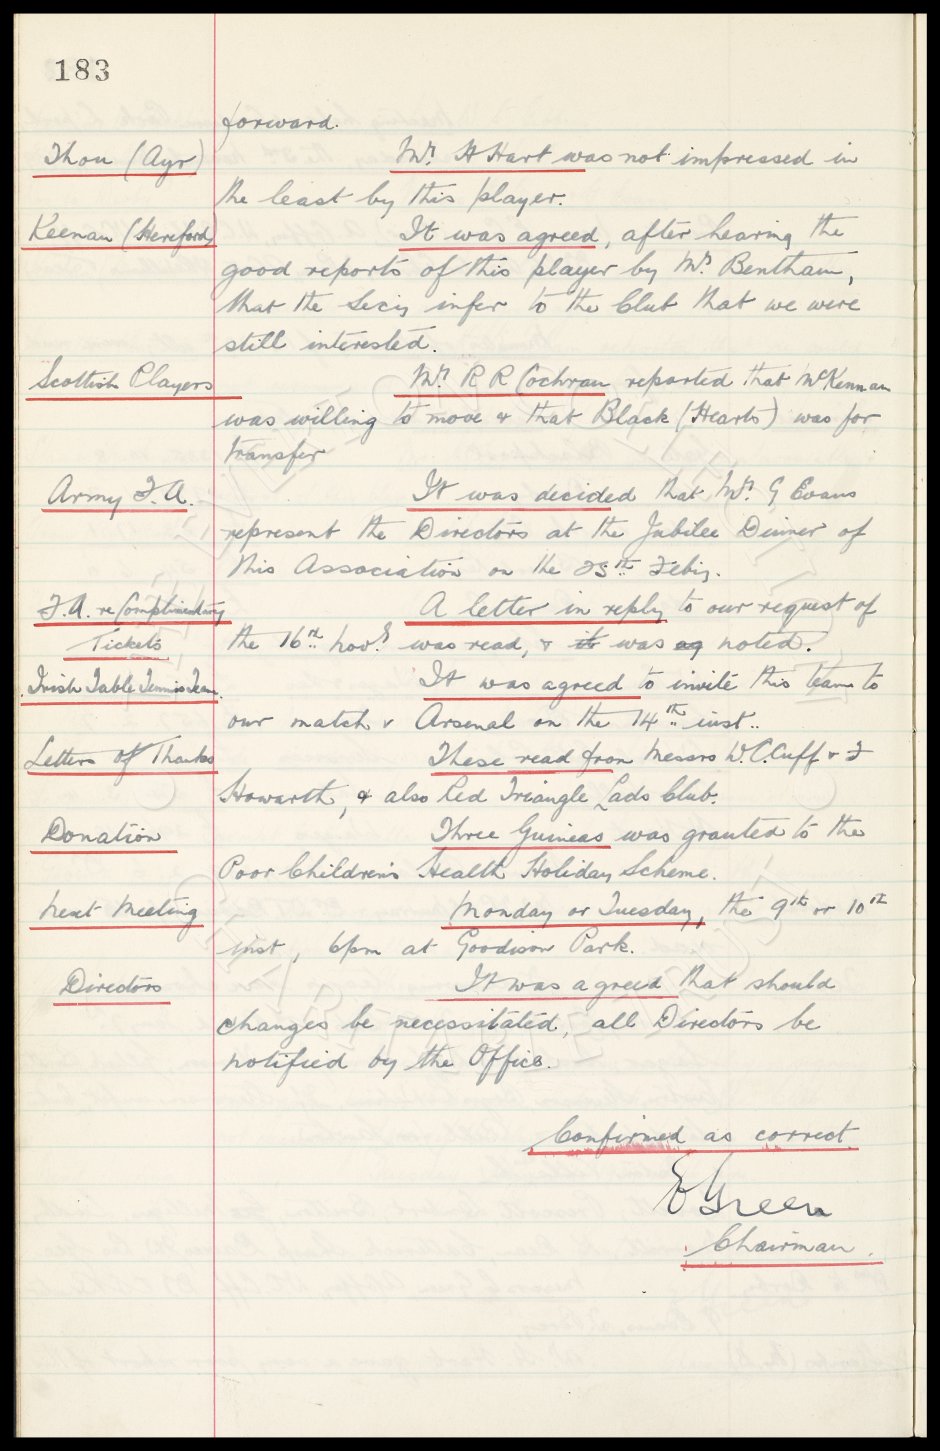 183
forward.
Thou (Ayr) Mr. H Hart was not impressed in
the least by this player.
Keenan (Hereford) It was agreed, after hearing the
good reports of this player by Mr. Bentham,
that the Secy infer to the Club that we were
still interested.
Scottish Players Mr. R R Cochran reported that McKennan
was willing to move & that Black (Hearts) was for
transfer
Army F.A. It was decided that Mr. G Evans
represent the Directors at the Jubilee Dinner of
this Association on the 25th Feby.
F.A. re Complimentary A letter in reply to our request of
Tickets the 16th Novr was read, & it was ag noted.
Irish Table Tennis Team. It was agreed to invite this team to
our match v Arsenal on the 14th inst..
Letters of Thanks These read from Messrs W.C. Cuff & F
Howarth, & also Red Triangle Lads Club.
Donation Three Guineas was granted to the
Poor Children's Health Holiday Scheme.
Next Meeting Monday or Tuesday, the 9th or 10th
inst, 6pm at Goodison Park.
Directors It was agreed that should
changes be necessitated, all Directors be
notified by the Office.
Confirmed as correct.
E Green
Chairman.